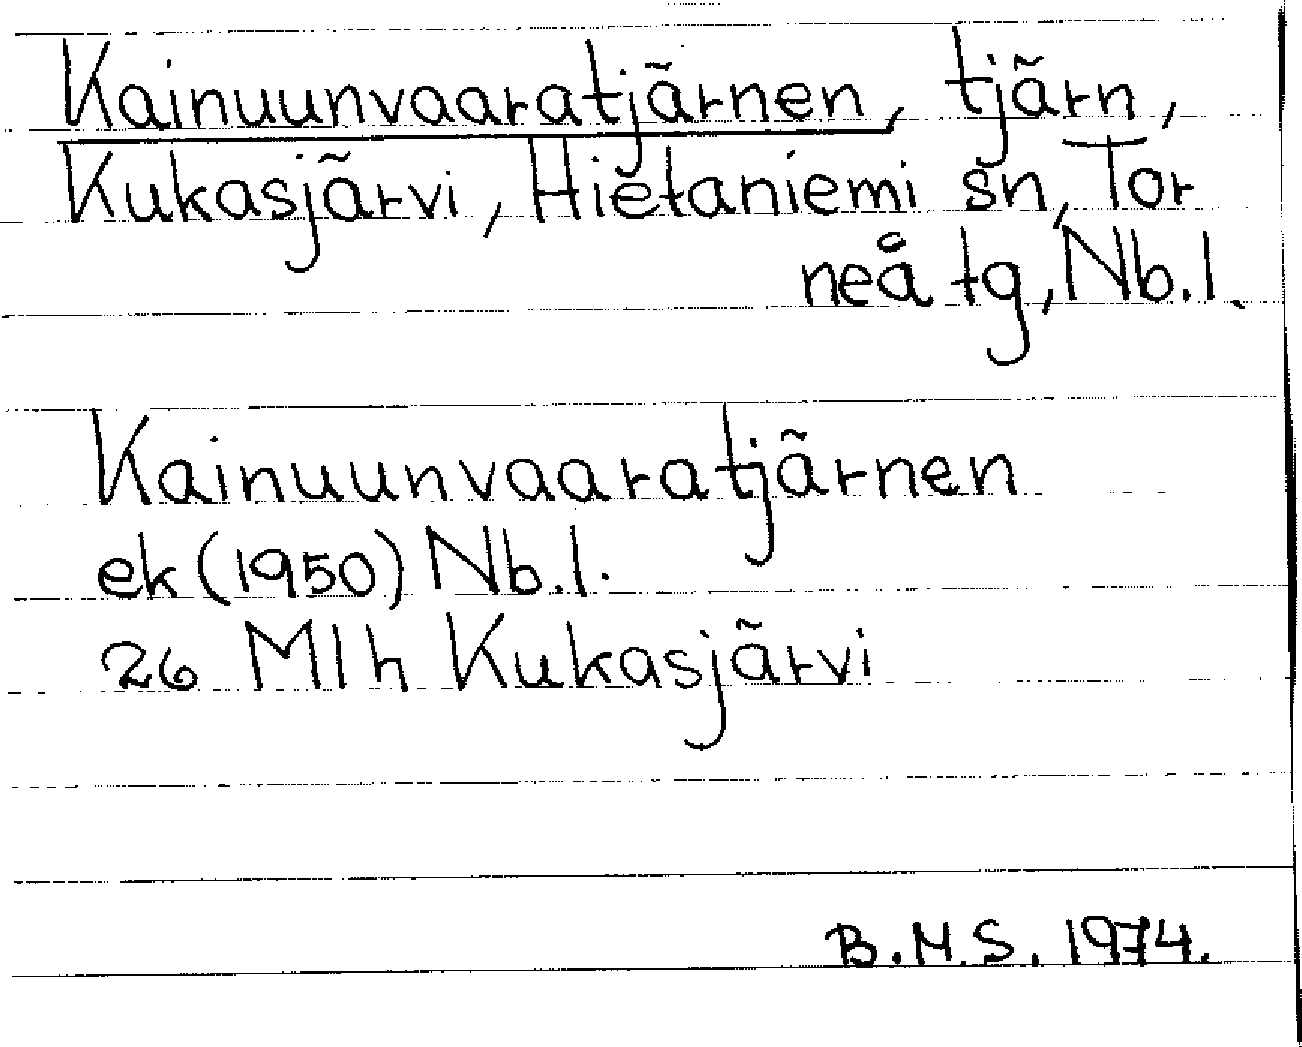 Kainuunvaaratjärnen, tjärn,
Kukasjärvi, Hietaniemi sn, Tor
neå tg, Nb.l.
Kainuunvaaratjärnen
ek (1950) Nb.l.
26 Mlh Kukasjärvi
B.M.S. 1974.